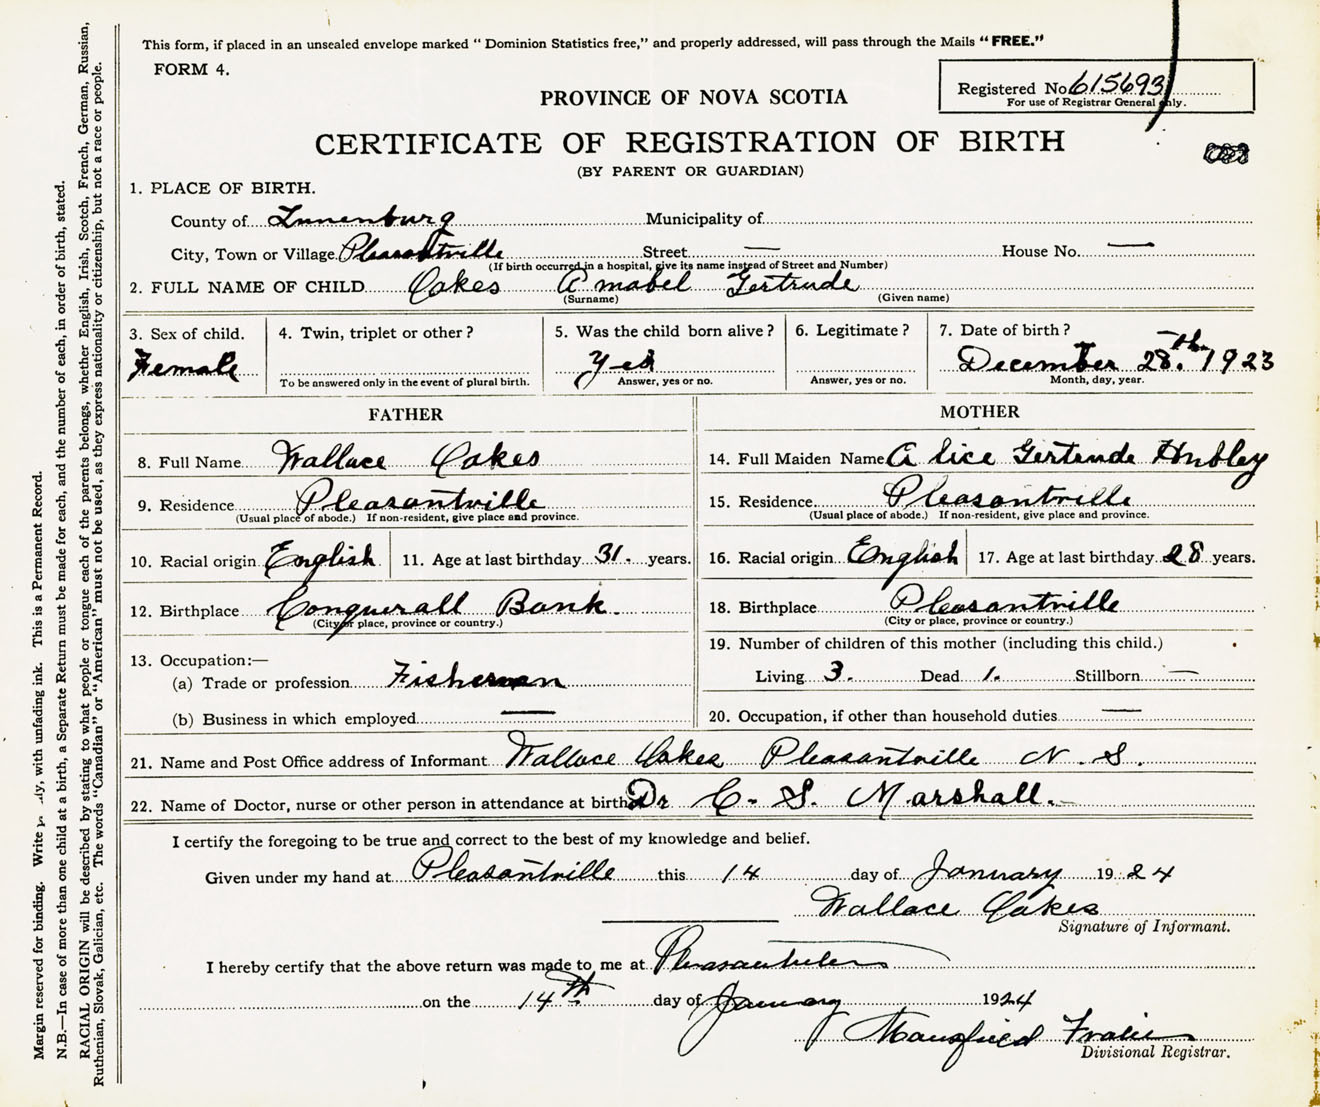 This form, if placed in an unsealed envelope marked “ Dominion Statistics free,” and properly addressed, will pass through the Mails “ FREE.”
FORM 4.
Registered No 615693
For use of Registrar General only.
PROVINCE OF NOVA SCOTIA
CERTIFICATE OF REGISTRATION OF BIRTH
(BY PARENT OR GUARDIAN)
1. PLACE OF BIRTH.
County of Lunenburg Municipality of
City, Town or Village Pleasantville Street — House No. —
(If birth occurred in a hospital, give its name instead of Street and Number)
2. FULL NAME OF CHILD Oakes Amabel Gertrude
(Surname) (Given name)
3. Sex of child. 4. Twin, triplet or other ? 5. Was the child born alive ? 6. Legitimate ? 7. Date of birth ?
Female Yes December 28th. 1923
To be answered only in the event of plural birth. Answer, yes or no. Answer, yes or no. Month, day, year.
FATHER MOTHER
8. Full Name Wallace Oakes 14. Full Maiden Name Alice Gertrude Hubley
9. Residence Pleasantville 15. Residence Pleasantville
(Usual place of abode.) If non-resident, give place and province. (Usual place of abode.) If non-resident, give place and province.
10. Racial origin English 11. Age at last birthday 31. years. 16. Racial origin English 17. Age at last birthday 28 years.
12. Birthplace Conquerall Bank. 18. Birthplace Pleasantville
(City or place, province or country.) (City or place, province or country.)
19. Number of children of this mother (including this child.)
13. Occupation:—
(a) Trade or profession Fisherman Living 3. Dead 1. Stillborn —
(b) Business in which employed — 20. Occupation, if other than household duties —
21. Name and Post Office address of Informant Wallace Oakes Pleasantville N. S.
22. Name of Doctor, nurse or other person in attendance at birth Dr C. S. Marshall.
I certify the foregoing to be true and correct to the best of my knowledge and belief.
Given under my hand at Pleasantville this 14 day of January 1924
Wallace Oakes
Signature of Informant.
I hereby certify that the above return was made to me at Pleasantville
on the 14th day of January 1924
Mansfield
Divisional Registrar.
Margin reserved for binding. Write with unfading ink. This is a Permanent Record.
N.B.—In case of more than one child at a birth, a Separate Return must be made for each, and the number of each, in order of birth, stated.
RACIAL ORIGIN will be described by stating to what people or tongue each of the parents belongs, whether English, Irish, Scotch, French, German, Russian,
Ruthenian, Slovak, Galician, etc. The words “Canadian” or “American” must not be used, as they express nationality or citizenship, but not a race or people.